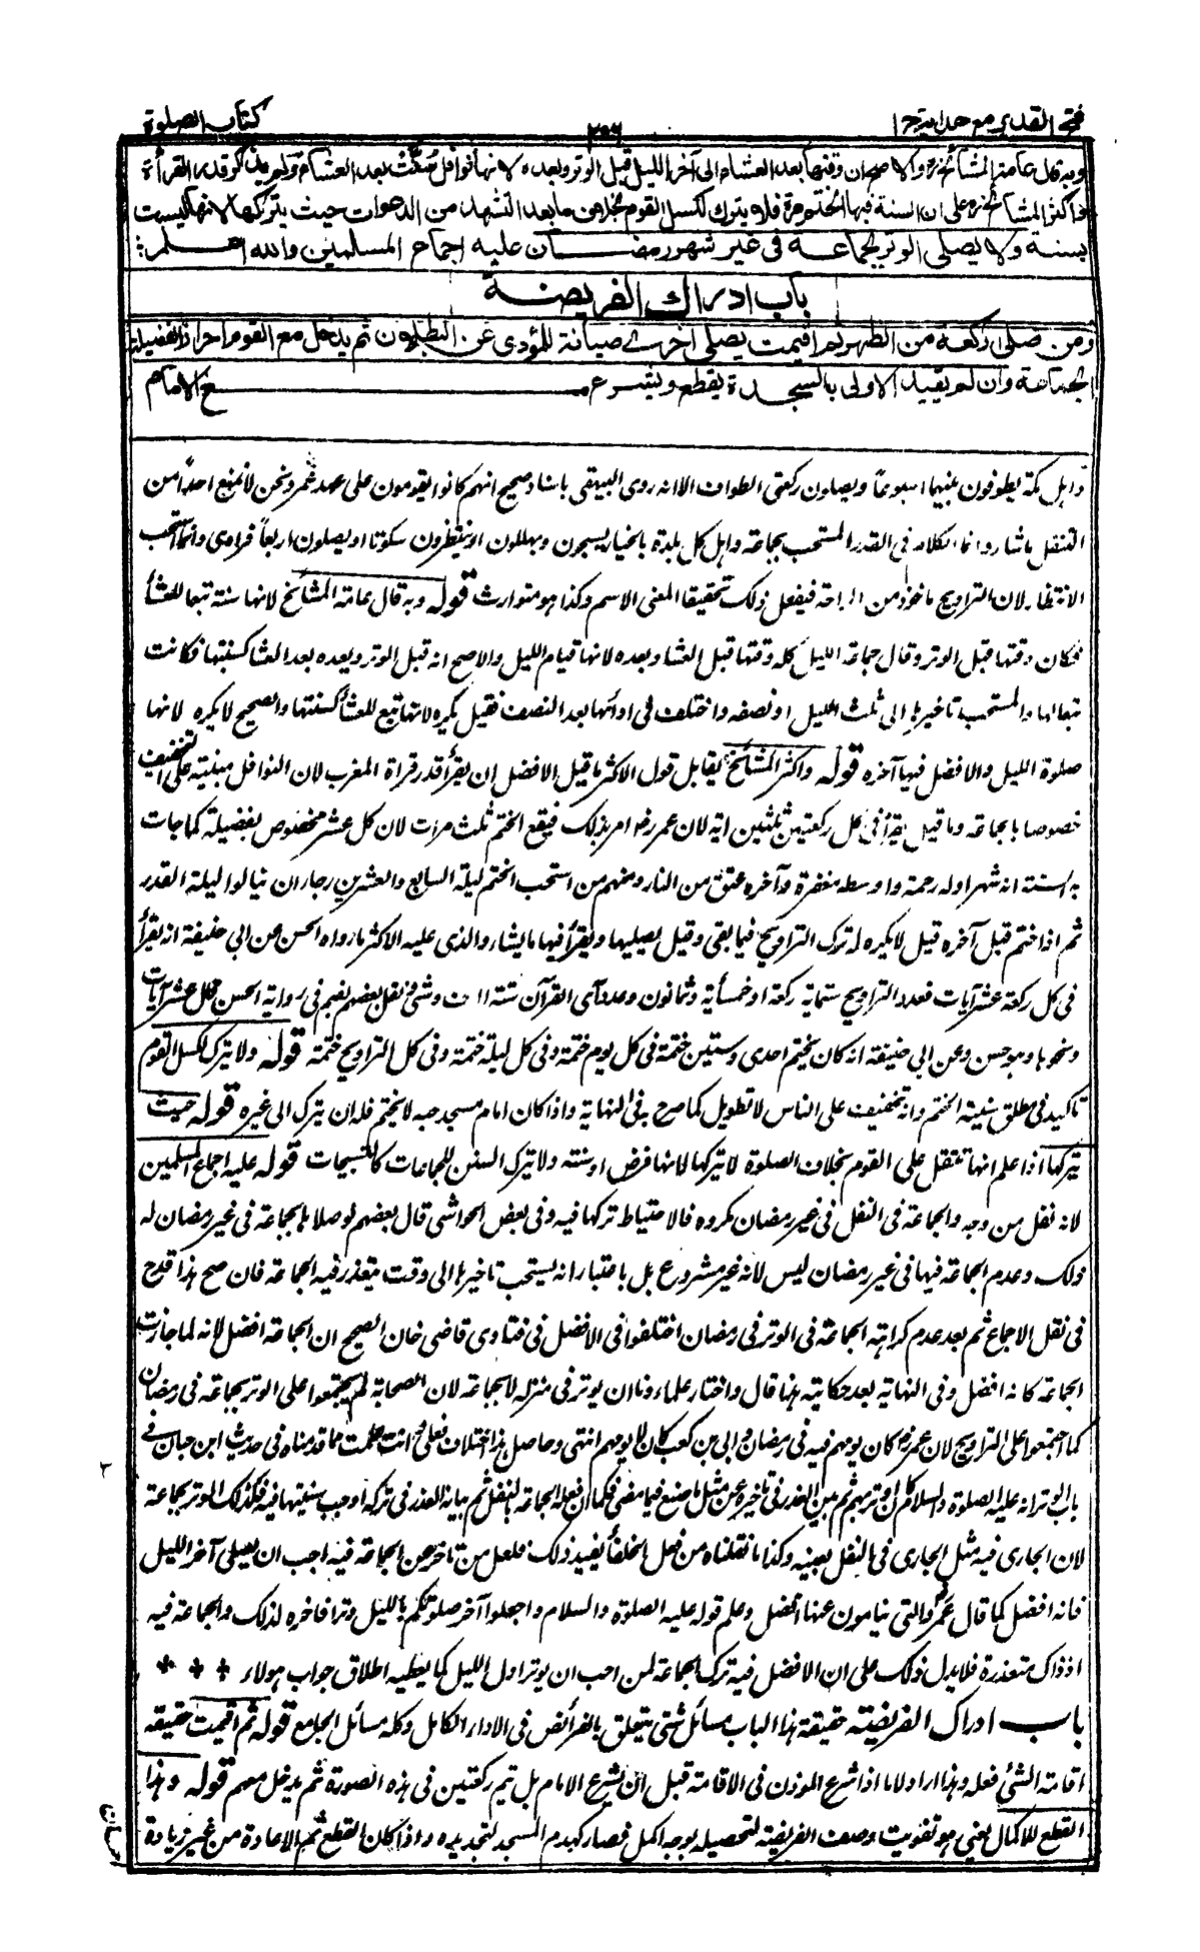 فتح القدير مع هداية ج ا
٢٠٦
كتاب الصلوة
وبه قال عامة المشائخ رح والاصح ان وقتها بعد العشاء الى آخر الليل قبل الوتر وبعده لانها نوافل سنت بعد العشاء ولم يذكر قدر القرأة
واكثر المشائخ رح على ان السنة فيها الختم مرة فلا يترك لكسل القوم بخلاف ما بعد التشهد من الدعوات حيث يتركها لانها ليست
بسنة ولا يصلى الوتر بجماعة فى غير شهر رمضان عليه اجماع المسلمين والله اعلم
باب ادراك الفريضة
ومن صلى ركعة من الظهر ثم اقيمت يصلى اخرى صيانة للمؤدى عن البطلان ثم يدخل مع القوم احرازا لفضيلة
الجماعة وان لم يقيد الاولى بالسجدة يقطع ويشرع مع الامام
واہل مكة يطوفون بينهما اسبوعًا ويصلون ركعتى الطواف الا انه روى البيهقى باسناد صحيح انهم كانوا يقومون على عهد عمر ونحن لا نمنع احدًا من
التنفل ما شاء وانما الكلام فى القدر المستحب بجماعة واہل كل بلدة بالخيار يسبحون ويهللون او ينتظرون سكوتا او يصلون اربعاً فرادى وانما استحب
الانتظار لان التراويح ماخوذ من الراحة فيفعل ذلك تحقيقا لمعنى الاسم وكذا ہو متوارث قوله وبه قال عامة المشائخ لانها سنة تبعا للعشأ
فكان وقتها قبل الوتر وقال جماعة الليل كله وقتها قبل العشا وبعده لانها قيام الليل والاصح انه قبل الوتر وبعده بعد العشا كسنتها فكانت
تبعا لها والمستحب تاخيرہا الى ثلث الليل او نصفه واختلف فى ادائها بعد النصف فقيل يكره لانها تبع للعشأ كسنتها والصحيح لا يكره لانها
صلوة الليل والافضل فيها آخره قوله واكثر المشائخ يقابل قول الاكثر ما قيل الافضل ان يقرأ قدر قراة المغرب لان النوافل مبنية على التخفيف
خصوصا بالجماعة وما قيل يقرأ فى كل ركعتين ثلثين اية لان عمر رض امر بذلك فيقع الختم ثلث مرات لان كل عشر مخصوص بفضيلة كما جات
به السنة انه شهر اوله رحمة واوسطه مغفرة وآخره عتق من النار ومنهم من استحب الختم ليلة السابع والعشرين رجاء ان ينالوا ليلة القدر
ثم اذا ختم قبل آخره قيل لا يكره له ترك التراويح فيما بقى وقيل يصليها ويقرأ فيها ما يشاء والذى عليه الاكثر ما رواه الحسن عن ابى حنيفة انه يقرأ
فى كل ركعة عشر آيات فعدد التراويح ستماية ركعة او خمسأية وثمانون وعدد آى القرآن ستة الاف وشئ ونقل بعضهم فى رواية الحسن عشر آيات
ونحوہا وہو حسن وعن ابى حنيفة انه كان يختم احدى وستين ختمة فى كل يوم ختمة وفى كل ليلة ختمة وفى كل التراويح ختمة قوله ولا يترك لكسل القوم
تاكيد فى مطلق سنية الختم وانه تخفيف على الناس لا تطويل كما صرح به فى النهاية واذا كان امام مسجد حيه لا يختم فله ان يترك الى غيره قوله حيث
يتركها اذا علم انها تثقل على القوم بخلاف الصلوة لا يتركها لانها فرض او سنة ولا يترك السنن للجماعات كالتسبيحات قوله عليه اجماع المسلمين
لانه نفل من وجه والجماعة فى النفل فى غير رمضان مكروه فالاحتياط تركها فيه وفى بعض الحواشى قال بعضهم لو صلاہا بجماعة فى غير رمضان له
ذلك وعدم الجماعة فيها فى غير رمضان ليس لانه غير مشروع بل باعتبار انه يستحب تاخيرہا الى وقت يتعذر فيه الجماعة فان صح ہذا قدح
فى نقل الاجماع ثم بعد عدم كراہة الجماعة فى الوتر فى رمضان اختلفوا فى الافضل فى فتاوى قاضى خان الصحيح ان الجماعة افضل لانه لما جازت
الجماعة كانه افضل وفى النهاية بعد حكاية ہذا قال واختار علماءونا ان يوتر فى منزله لا بجماعة لان الصحابة لم يجتمعوا على الوتر بجماعة فى رمضان
كما اجتمعوا على التراويح لان عمر رض كان يومهم فيه فى رمضان وابى بن كعب كان لا يومهم انتهى وحاصل ہذا اختلاف فعلى وانت علمت مما قدمناه فى حديث ابن حبان فى
باب الوتر انه عليه الصلوة والسلام كان اوتر بهم ثم بين العذر فى تاخيره عن مثل ما صنع فيما مضى فكما ان فعله الجماعة بالنفل ثم بيانه العذر فى تركه اوجب سنيتها فيه فكذلك الوتر بجماعة
لان الجارى فيه مثل الجارى فى النفل بعينه وكذا ما نقلناه من فعل الخلفأ يفيد ذلك فلعل من تاخر عن الجماعة فيه احب ان يصلى آخر الليل
فانه افضل كما قال عمر رض والتى ينامون عنها افضل وعلم قوله عليه الصلوة والسلام واجعلوا آخر صلوتكم بالليل وترا فاخره لذلك والجماعة فيه
اذ ذاك متعذرة فلا يدل ذلك على ان الافضل فيه ترك الجماعة لمن احب ان يوتر اول الليل كما يعطيه اطلاق جواب ہولاء
باب ادراك الفريضة حقيقة ہذا الباب مسائل شتى يتعلق بالفرائض فى الاداء الكامل وكله مسائل الجامع قوله ثم اقيمت حقيقة
اقامة الشئ فعله وہذا اراد لا ما اذا شرع الموذن فى الاقامة قبل ان يشرع الامام بل يتم ركعتين فى ہذه الصورة ثم يدخل معهم قوله وہذا
القطع للاكمال يعنى ہو تفويت وصف الفريضة لتحصيله بوجه اكمل فصار كهدم المسجد لتجديده واذا كان القطع ثم الاعادة من غير زيادة